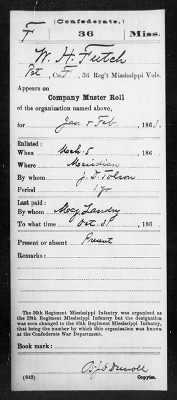 (Confederate.)
F 36 Miss.
W. H. Futch
Pvt, Co. F, 36 Reg't Mississippi Vols.
Appears on
Company Muster Roll
of the organization named above,
for Jan & Feb, 1863.
Enlisted:
When Mch 5, 186
Where Meridian
By whom J. T. Tolson
Period 1 yr
Last paid:
By whom Maj. Landry
To what time Oct 31, 186
Present or absent Present
Remarks:
The 36th Regiment Mississippi Infantry was organized as
the 28th Regiment Mississippi Infantry but the designation
was soon changed to the 36th Regiment Mississippi Infantry,
that being the number by which this organization was known
at the Confederate War Department.
Book mark:
(642) Copyist.